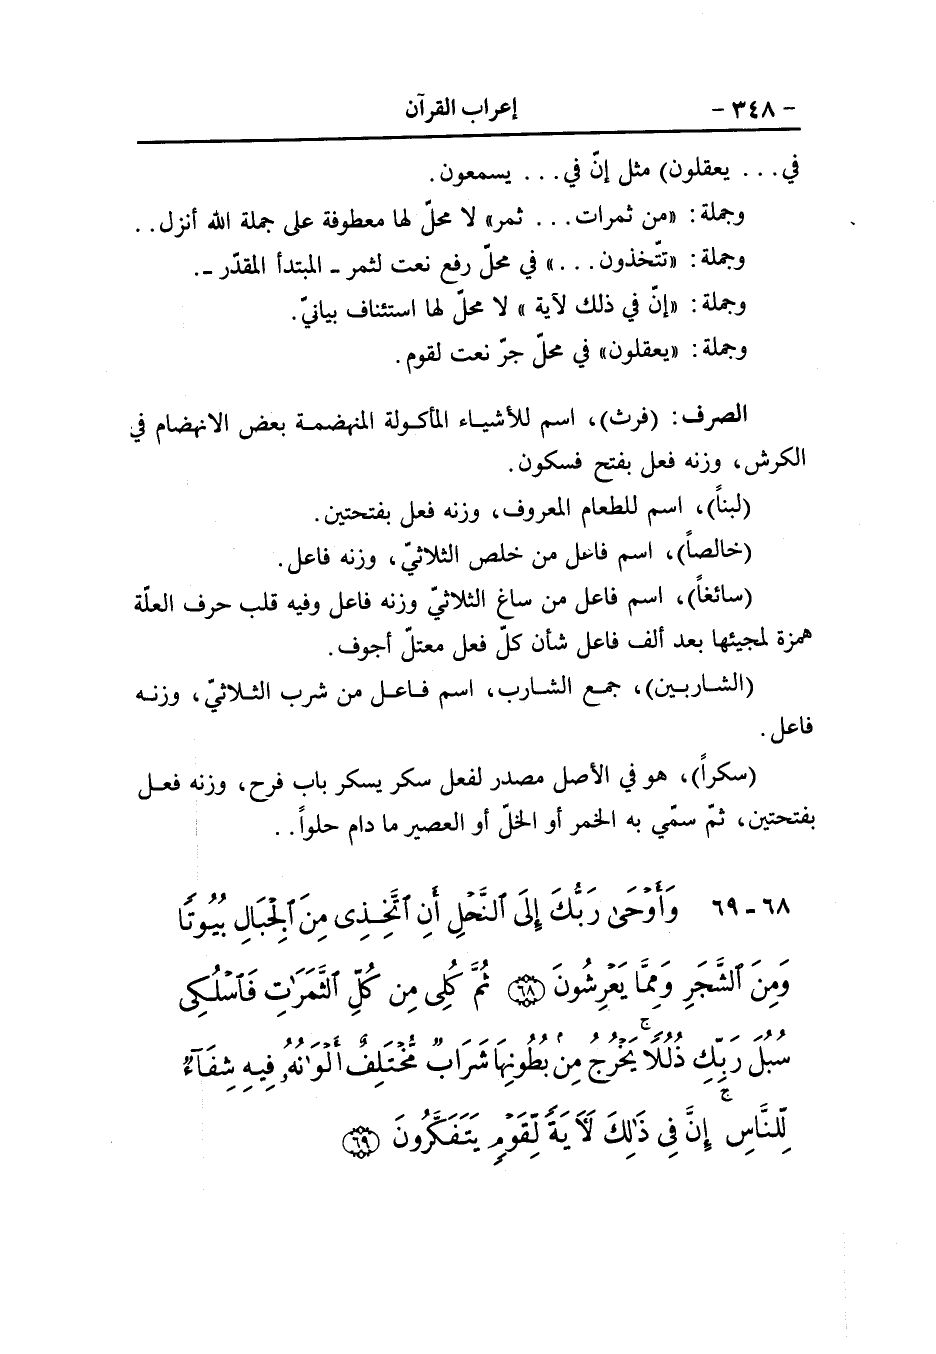 - ٣٤٨ -
إعراب القرآن
في... يعقلون) مثل إنّ في... يسمعون.
وجملة: «من ثمرات... ثمر» لا محلّ لها معطوفة على جملة الله أنزل..
وجملة: «تتّخذون...» في محلّ رفع نعت لثمر ـ المبتدأ المقدّر ـ.
وجملة: «إنّ في ذلك لآية» لا محلّ لها استئناف بيانيّ.
وجملة: «يعقلون» في محلّ جرّ نعت لقوم.
الصرف: (فرث)، اسم للأشياء المأكولة المنهضمة بعض الانهضام في
الكرش، وزنه فعل بفتح فسكون.
(لبناً)، اسم للطعام المعروف، وزنه فعل بفتحتين.
(خالصاً)، اسم فاعل من خلص الثلاثيّ، وزنه فاعل.
(سائغاً)، اسم فاعل من ساغ الثلاثيّ وزنه فاعل وفيه قلب حرف العلّة
همزة لمجيئها بعد ألف فاعل شأن كلّ فعل معتلّ أجوف.
(الشاربين)، جمع الشارب، اسم فاعل من شرب الثلاثيّ، وزنه
فاعل.
(سكراً)، هو في الأصل مصدر لفعل سكر يسكر باب فرح، وزنه فعل
بفتحتين، ثمّ سمّي به الخمر أو الخلّ أو العصير ما دام حلواً..
٦٨ - ٦٩ وَأَوْحَىٰ رَبُّكَ إِلَى ٱلنَّحْلِ أَنِ ٱتَّخِذِى مِنَ ٱلْجِبَالِ بُيُوتًا
وَمِنَ ٱلشَّجَرِ وَمِمَّا يَعْرِشُونَ ﴿٦٨﴾ ثُمَّ كُلِى مِن كُلِّ ٱلثَّمَرَٰتِ فَٱسْلُكِى
سُبُلَ رَبِّكِ ذُلُلًا ۚ يَخْرُجُ مِنۢ بُطُونِهَا شَرَابٌ مُّخْتَلِفٌ أَلْوَٰنُهُۥ فِيهِ شِفَآءٌ
لِّلنَّاسِ ۚ إِنَّ فِى ذَٰلِكَ لَـَٔايَةً لِّقَوْمٍ يَتَفَكَّرُونَ ﴿٦٩﴾